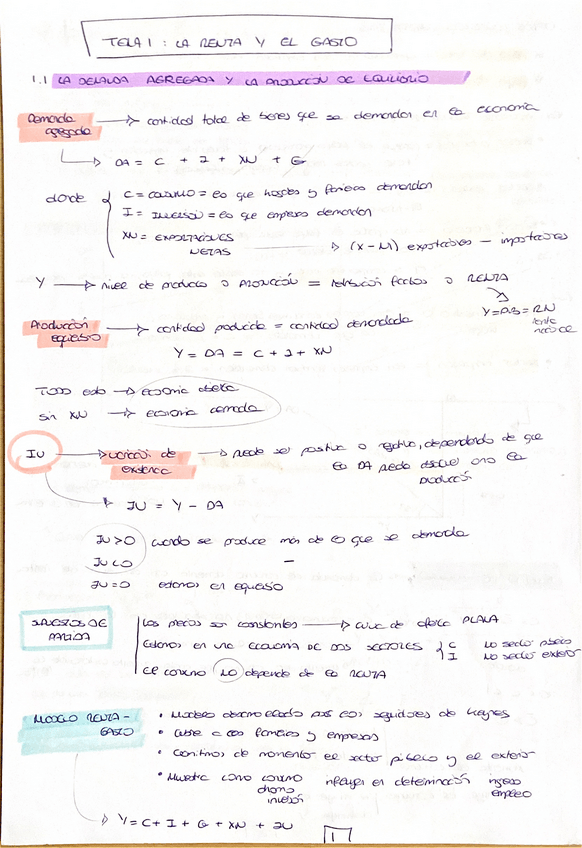 TEMA 1: LA RENTA Y EL GASTO
1.1 LA DEMANDA AGREGADA Y LA PRODUCCIÓN DE EQUILIBRIO
Demanda agregada → cantidad total de bienes que se demandan en la economía
→ DA = C + I + XN + G
donde { C = CONSUMO = lo que hogares y familias demandan
I = INVERSIÓN = lo que empresas demandan
XN = EXPORTACIONES NETAS → (X - M) exportaciones - importaciones
Y → nivel de producto o PRODUCCIÓN = retribución factores o RENTA
Y = RN
renta nacional
Producción equilibrio → cantidad producida = cantidad demandada
Y = DA = C + I + XN
TODO esto → economía abierta
sin XN → economía cerrada
IU → variación de existencias → Puede ser positiva o negativa, dependiendo de que
la DA la producción
→ IU = Y - DA
IU > 0 cuando se produce más de lo que se demanda
IU < 0 -
IU = 0 estamos en equilibrio
SUPUESTOS DE PARTIDA
Los precios son constantes → curva de oferta PLANA
Estamos en una ECONOMÍA DE DOS SECTORES { C No sector público
I No sector exterior
El consumo NO depende de la RENTA
MODELO RENTA - GASTO
• Modelo desarrollado por los seguidores de Keynes
• a las familias y empresas
• de momento el sector público y el exterior
• Muestra como consumo ahorro inversión influyen en determinación ingreso empleo
→ Y = C + I + G + XN + IU
1